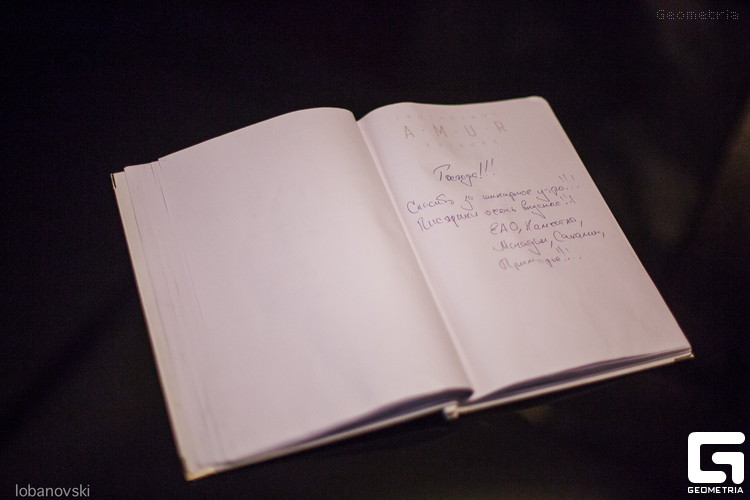 Geometria
A·M·U·R
Господа!!!
Спасибо за шикарное утро!!!
очень вкусные!!!
ЕАО, Камчатка,
Магадан, Сахалин,
Приморье!...
lobanovski
GEOMETRIA